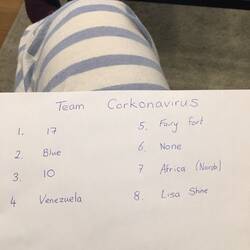 Team Corkonavirus
1. 17
2. Blue
3. 10
4 Venezuela
5. Fairy fort
6. None
7 Africa (Nairobi)
8. Lisa Shine